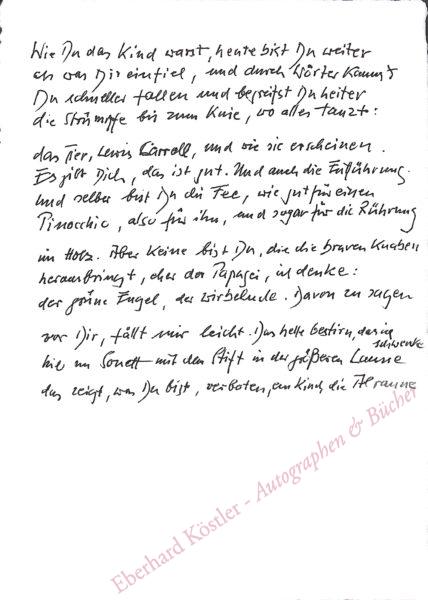 Wie Du das Kind warst, heute bist Du weiter
als was Dir einfiel, und durch Wörter kannst
Du schneller fallen und begreifst Du heiter
die Strümpfe bis zum Knie, wo alles tanzt:
das Tier, Lewis Carroll, und wie sie erscheinen.
Es gibt Dich, das ist gut. Und auch die Entführung.
Und selber bist Du die Fee, wie gut für einen
Pinocchio, also für ihn, und sogar für die Rührung
im Holz. Aber keine bist Du, die die braven Knaben
herausbringt, eher der Papagei, ich denke:
der grüne Engel, der wirbelnde. Davon zu sagen
vor Dir, fällt mir leicht. Das helle
schwenke
hie im Sonett mit dem Stift in der größeren Laune
das zeigt, was Du bist, verboten, ein Kind, die Alraune
Eberhard Köstler - Autographen & Bücher